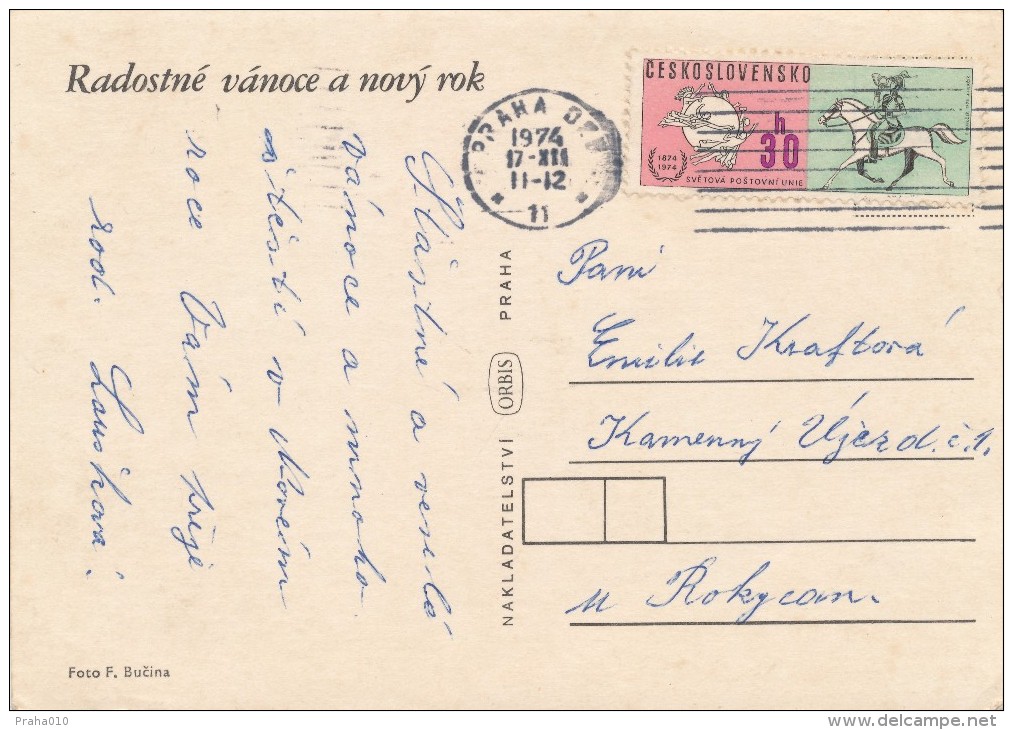 Radostné vánoce a nový rok
ČESKOSLOVENSKO
h
30
1874
1974
SVĚTOVÁ POŠTOVNÍ UNIE
PRAHA
1974
17-XII
11-12
11
Šťastné a veselé
vánoce a mnoho
štěstí v Novém
roce Vám přeje
rod.
NAKLADATELSTVÍ ORBIS PRAHA
Paní
Emilie Kraftová
Kamenný Újezd č.1.
u Rokycan.
Foto F. Bučina
Praha010
delcampe.net